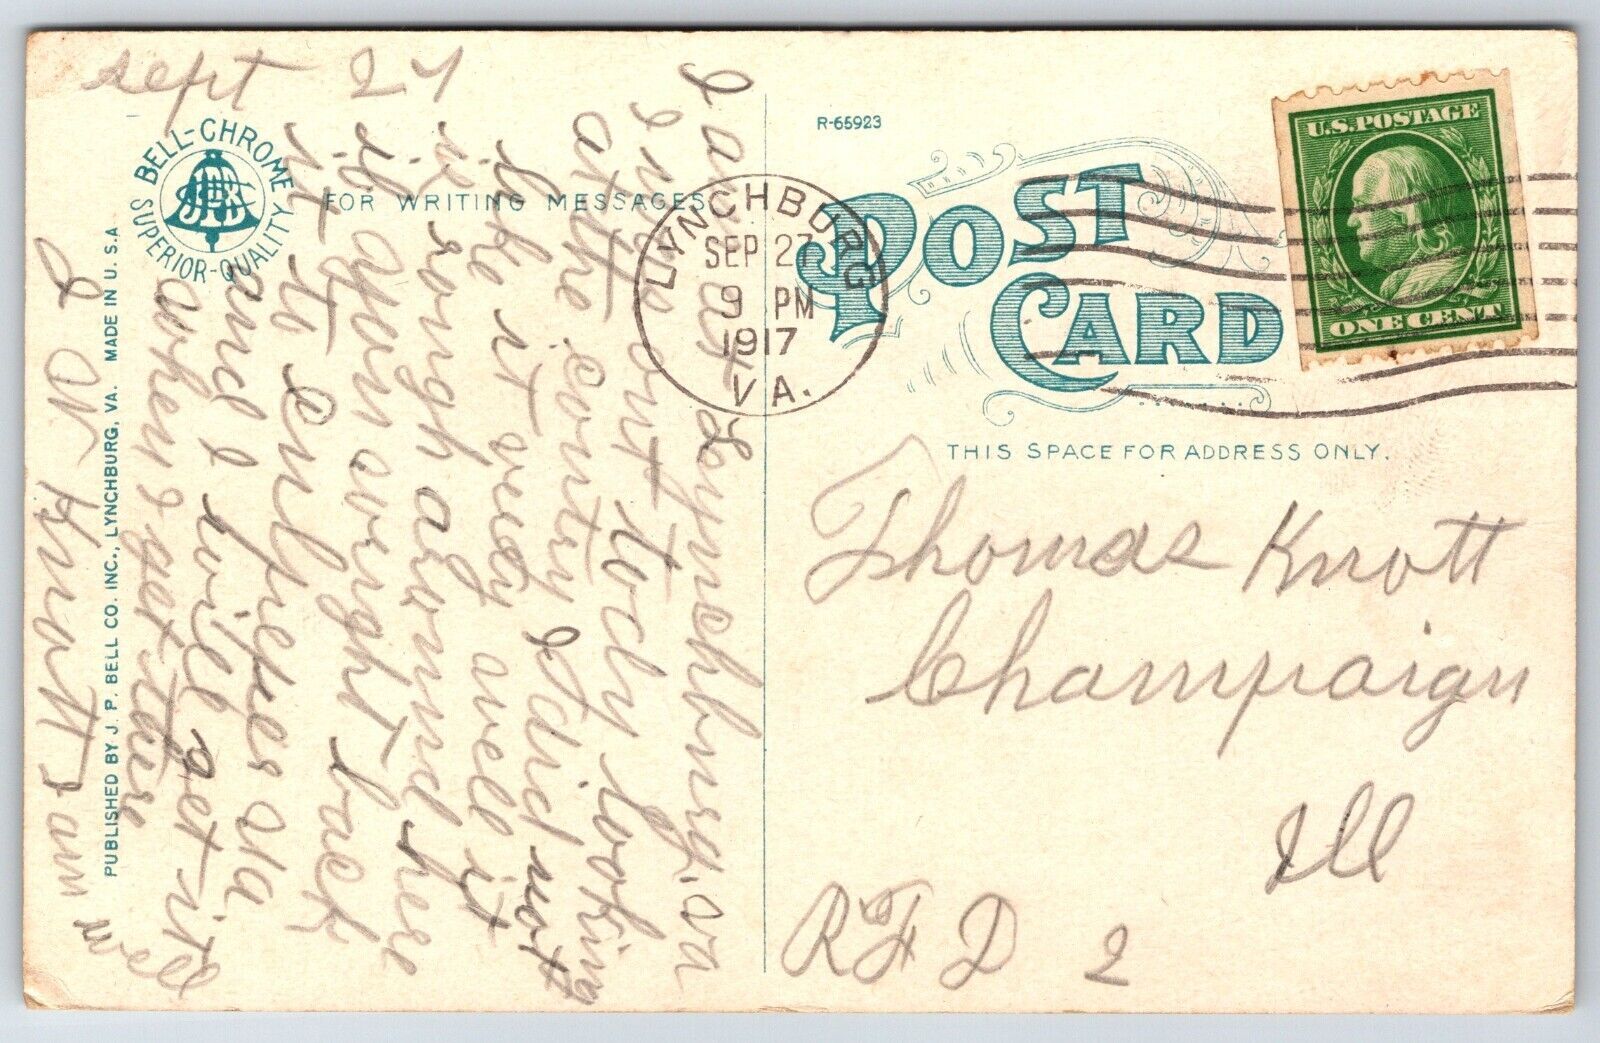 Sept 27
I am at Lynchburg, va
I was out tody looking
at the contry I did not
like it very well it
is rough around here
it is a fous over night back
to Culpepes Va
and I will get itt
when I get there
J W Knott I am well
BELL-CHROME
SUPERIOR-QUALITY
FOR WRITING MESSAGES
PUBLISHED BY J. P. BELL CO. INC., LYNCHBURG, VA. MADE IN U. S. A
LYNCHBURG
SEP 27
9 PM
1917
VA.
R-65923
POST
CARD
U.S. POSTAGE
ONE CENT
THIS SPACE FOR ADDRESS ONLY.
Thomas Knott
Champaign
Ill
RFD 2